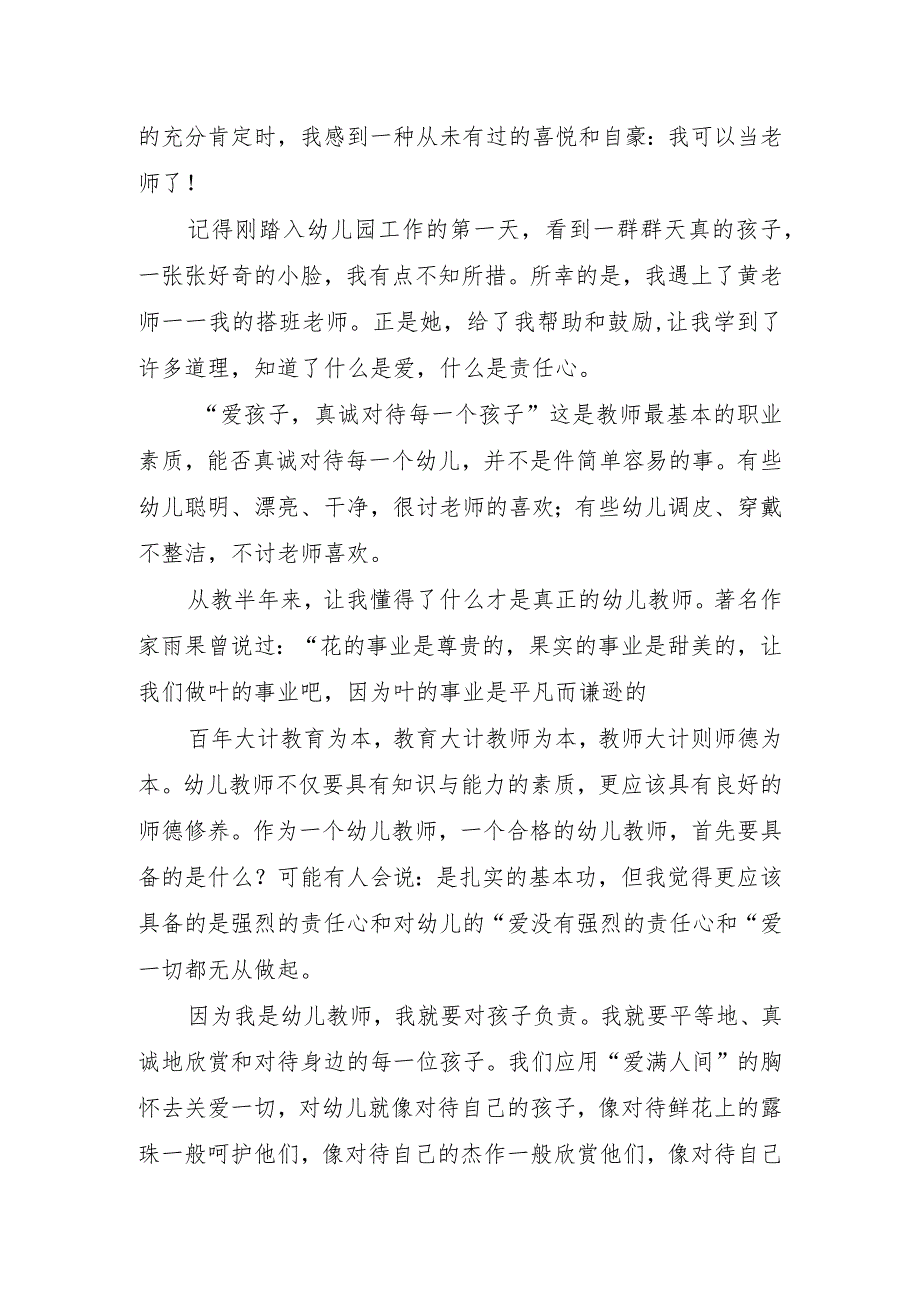 的充分肯定时，我感到一种从未有过的喜悦和自豪：我可以当老
师了！
记得刚踏入幼儿园工作的第一天，看到一群群天真的孩子，
一张张好奇的小脸，我有点不知所措。所幸的是，我遇上了黄老
师一一我的搭班老师。正是她，给了我帮助和鼓励,让我学到了
许多道理，知道了什么是爱，什么是责任心。
“爱孩子，真诚对待每一个孩子”这是教师最基本的职业
素质，能否真诚对待每一个幼儿，并不是件简单容易的事。有些
幼儿聪明、漂亮、干净，很讨老师的喜欢；有些幼儿调皮、穿戴
不整洁，不讨老师喜欢。
从教半年来，让我懂得了什么才是真正的幼儿教师。著名作
家雨果曾说过：“花的事业是尊贵的，果实的事业是甜美的，让
我们做叶的事业吧，因为叶的事业是平凡而谦逊的
百年大计教育为本，教育大计教师为本，教师大计则师德为
本。幼儿教师不仅要具有知识与能力的素质，更应该具有良好的
师德修养。作为一个幼儿教师，一个合格的幼儿教师，首先要具
备的是什么？可能有人会说：是扎实的基本功，但我觉得更应该
具备的是强烈的责任心和对幼儿的“爱没有强烈的责任心和“爱
一切都无从做起。
因为我是幼儿教师，我就要对孩子负责。我就要平等地、真
诚地欣赏和对待身边的每一位孩子。我们应用“爱满人间”的胸
怀去关爱一切，对幼儿就像对待自己的孩子，像对待鲜花上的露
珠一般呵护他们，像对待自己的杰作一般欣赏他们，像对待自己